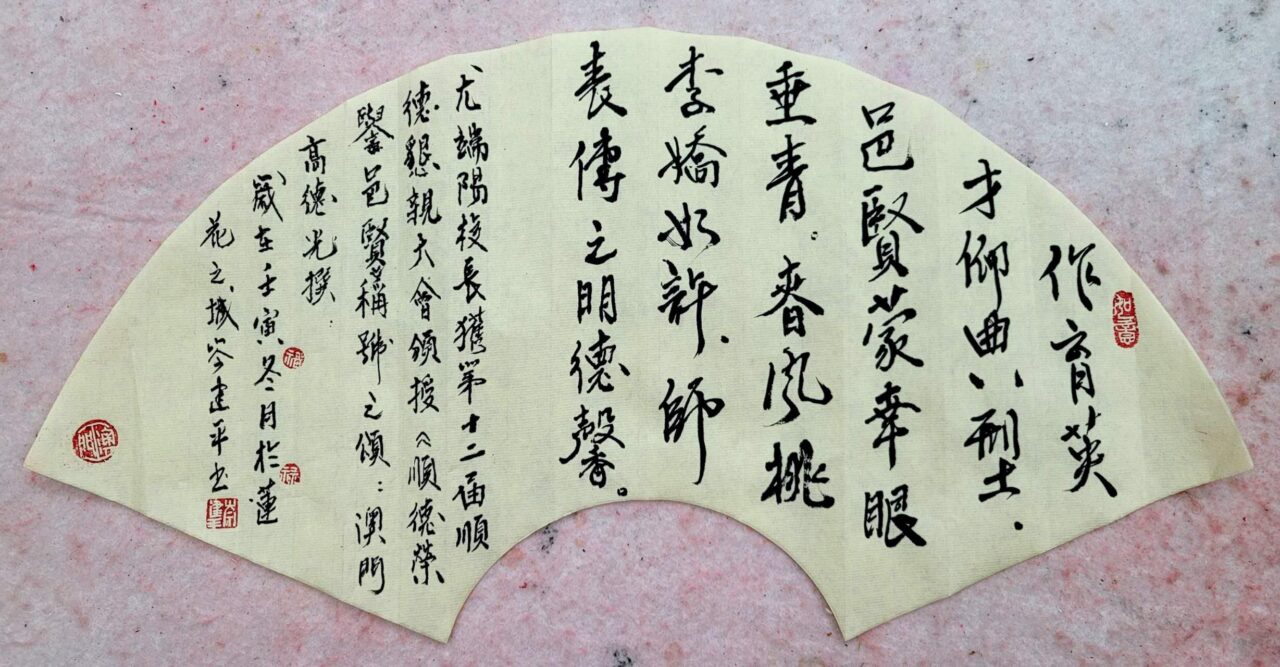 如意
作育英
才仰典型.
邑賢蒙幸眼
垂青。春風桃
李嬌如許.師
表傳之明德馨。
尤端陽校長獲第十二届順
德懇親大會頒授《順德榮
譽邑賢》稱號之頌:澳門
高德光撰
歲在壬寅冬月於蓮
花之城岑建平书
澳門